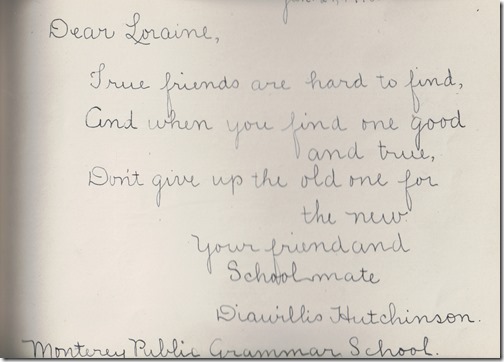 Dear Loraine,
True friends are hard to find,
And when you find one good
and true,
Don't give up the old one for
the new.
Your friend and
Schoolmate
Diawillis Hutchinson.
Monterey Public Grammar School.